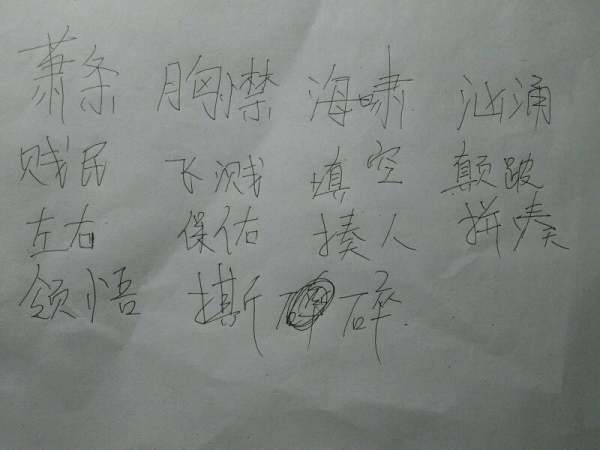 萧条 胸襟 海啸 汹涌
贱民 飞溅 填空 颠跛
左右 保佑 揍人 拼凑
领悟 撕碎